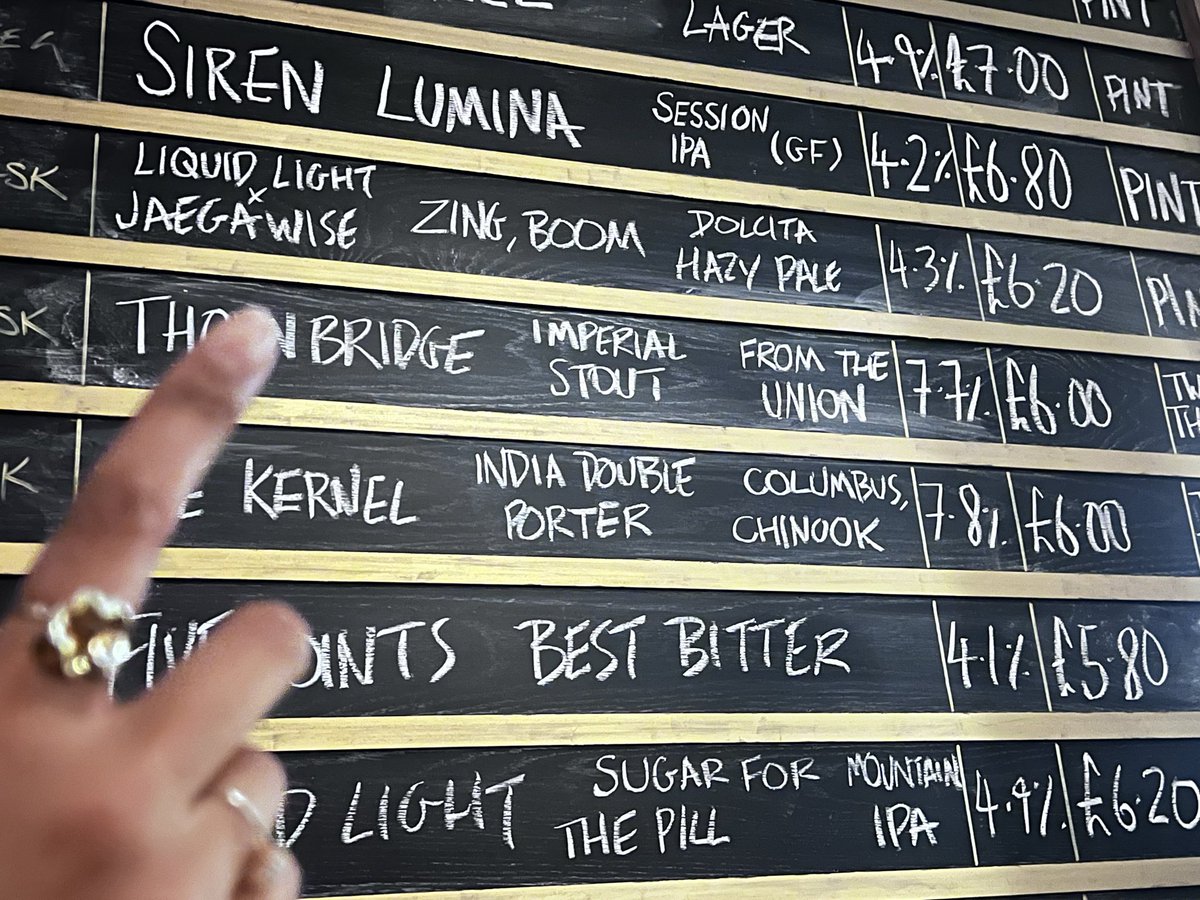 LAGER 4.9% £7.00 PINT
SIREN LUMINA SESSION IPA (GF) 4.2% £6.80 PINT
SK LIQUID LIGHT X JAEGA WISE ZING, BOOM DOLCITA HAZY PALE 4.3% £6.20
SK BRIDGE IMPERIAL STOUT FROM THE UNION 7.7% £6.00
K KERNEL INDIA DOUBLE PORTER COLUMBUS, CHINOOK 7.8% £6.00
BEST BITTER 4.1% £5.80
LIGHT SUGAR FOR THE PILL MOUNTAIN IPA 4.9% £6.20